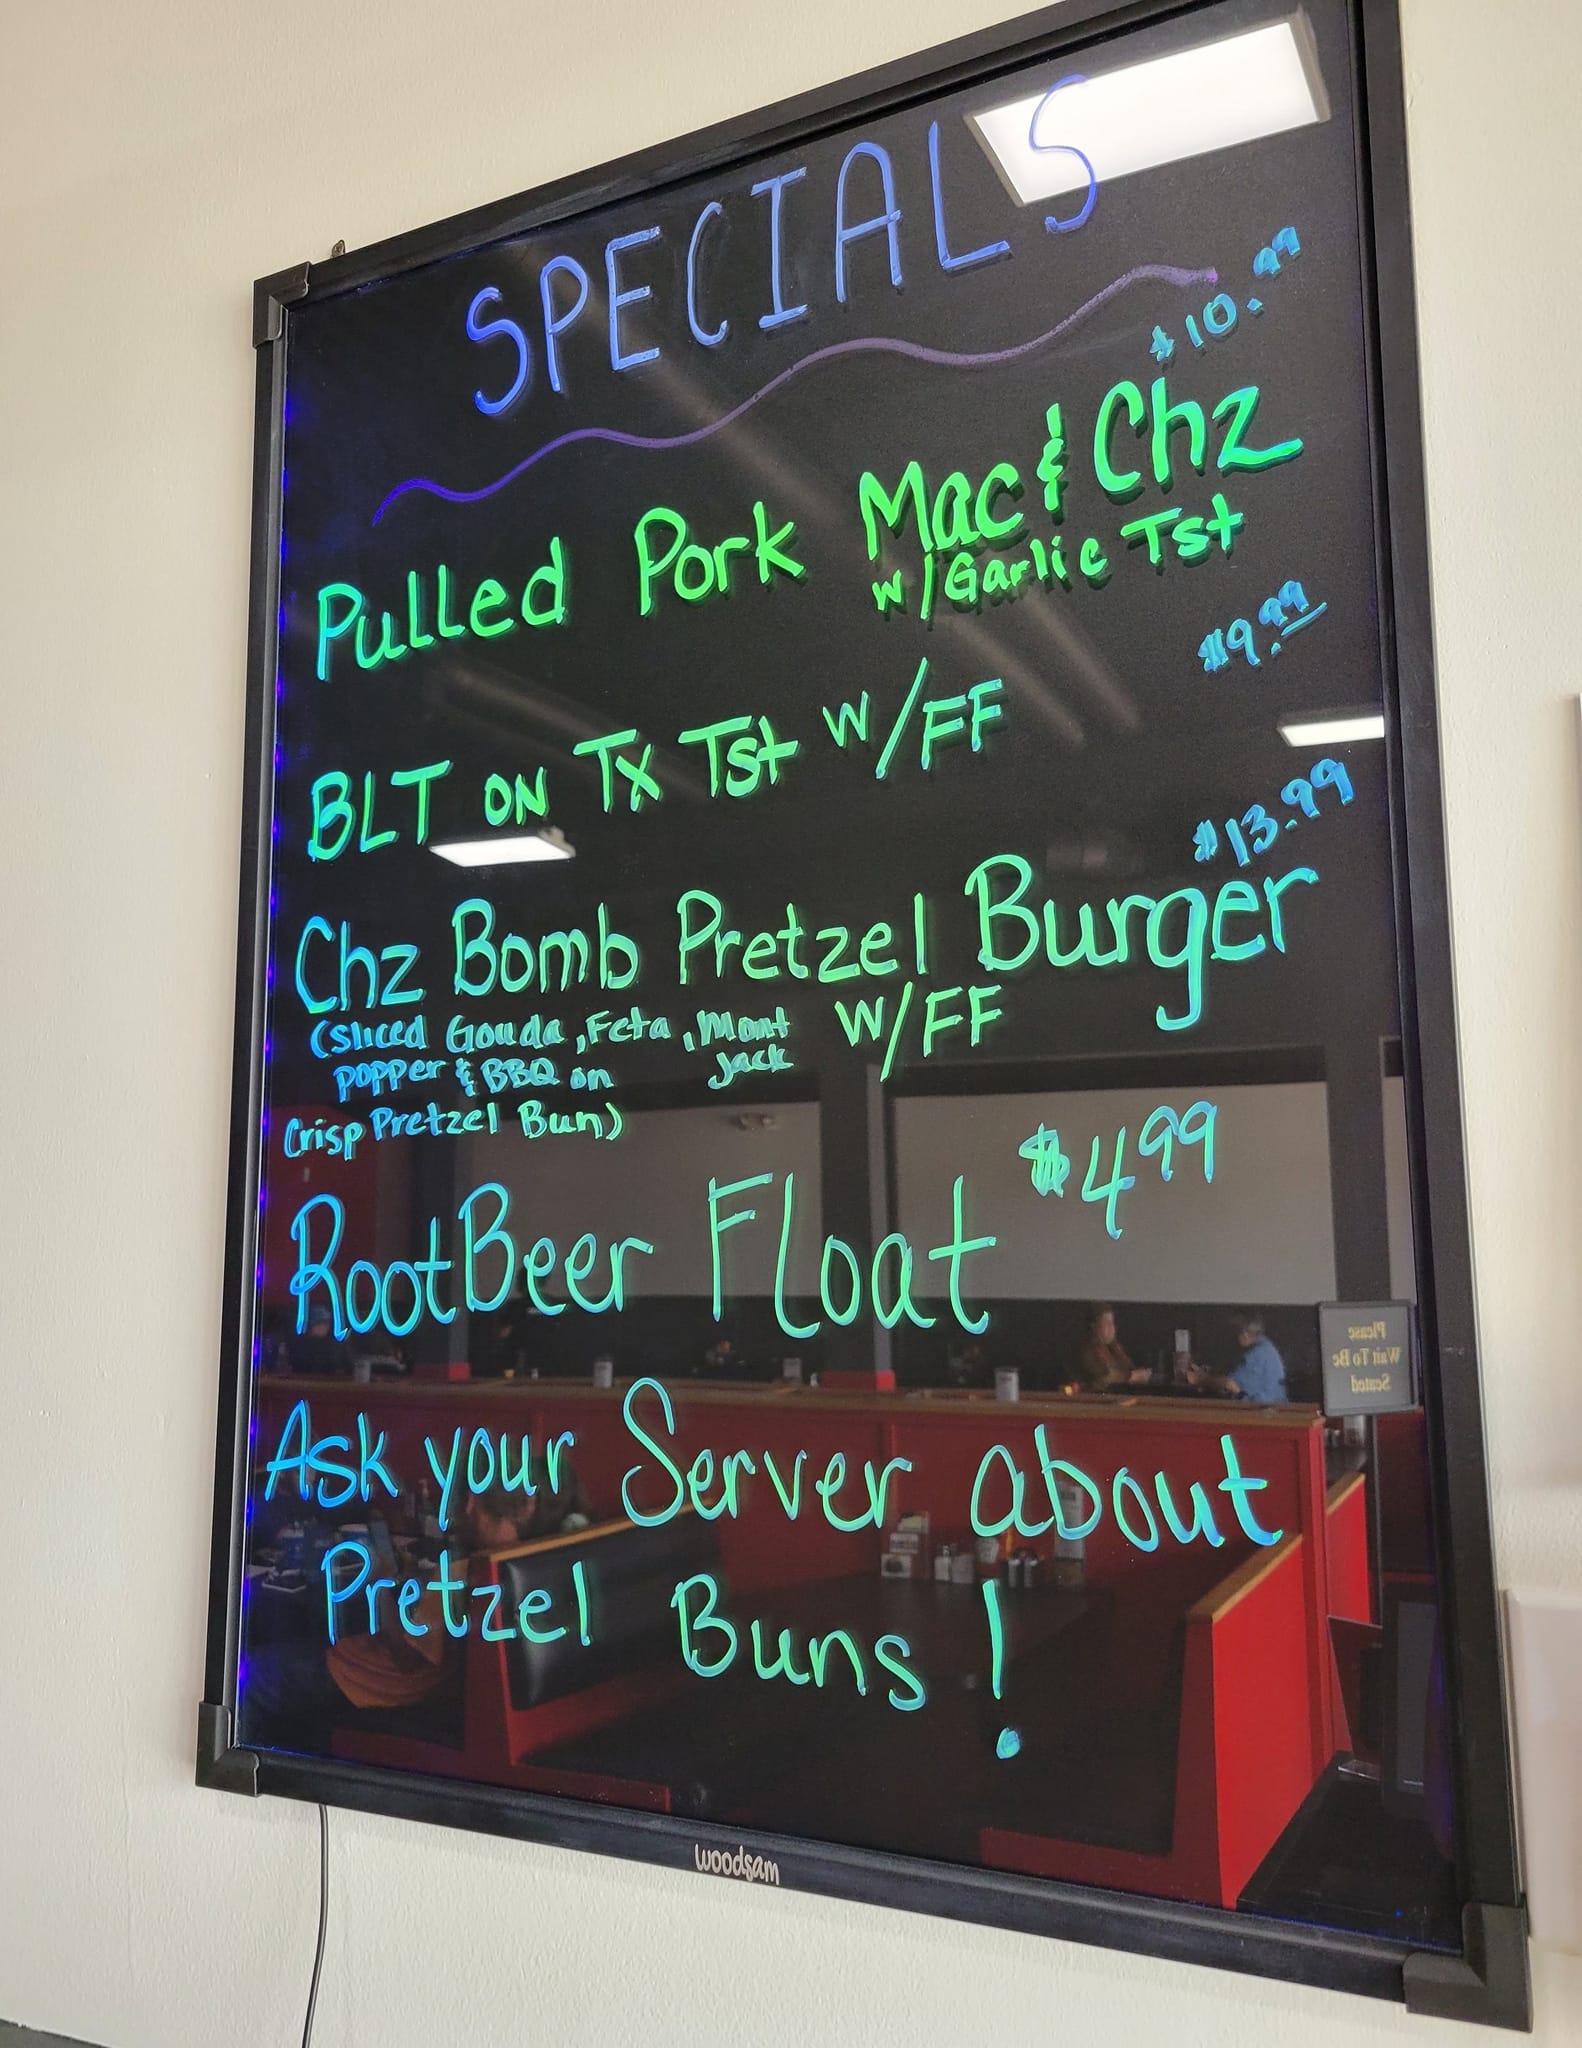 SPECIALS
$10.99
Pulled Pork Mac & Chz
w/Garlic Tst
$9.99
BLT ON Tx Tst w/FF
$13.99
Chz Bomb Pretzel Burger
(Sliced Gouda, Feta, Mont Jack W/FF
popper & BBQ on
Crisp Pretzel Bun)
$4.99
RootBeer Float
Ask your Server about
Pretzel Buns!
Please
Wait To Be
Seated
woodsam